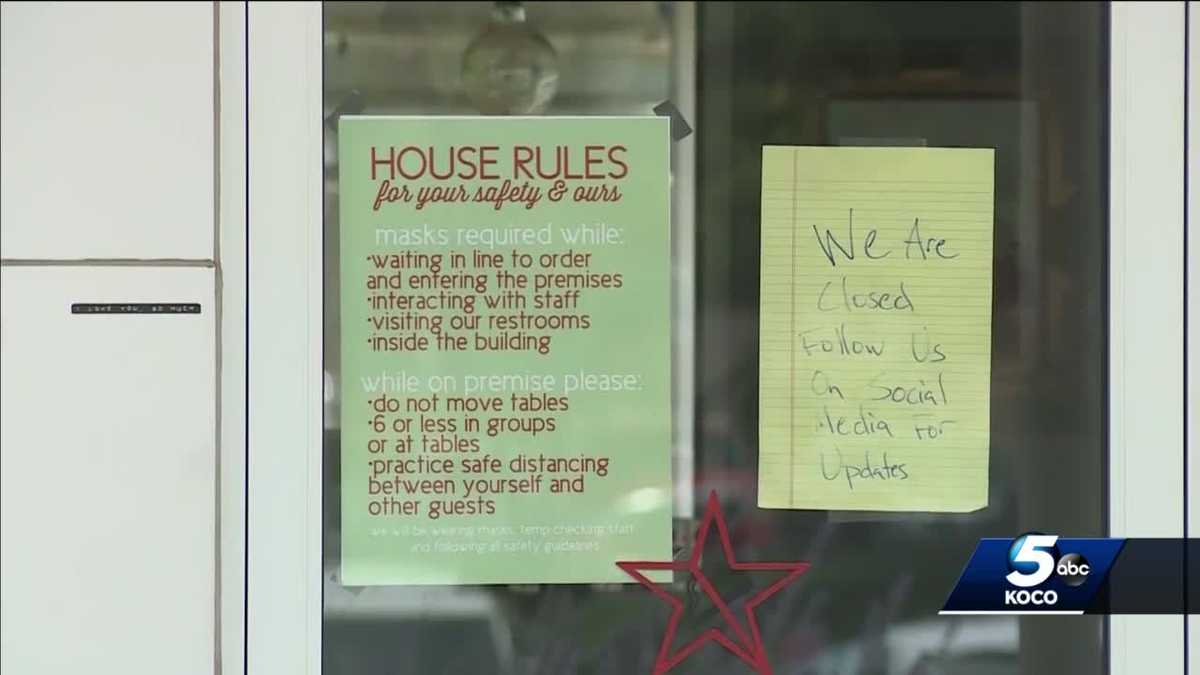 HOUSE RULES
for your safety & ours
masks required while:
•waiting in line to order
and entering the premises
•interacting with staff
•visiting our restrooms
•inside the building
while on premise please:
•do not move tables
•6 or less in groups
or at tables
•practice safe distancing
between yourself and
other guests
we will be wearing masks, temp checking staff
and following all safety guidelines
We Are
Closed
Follow Us
On Social
Media For
Updates
I LOVE YOU, SO MUCH
5 abc
KOCO